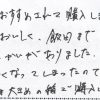 おすすめされて購入しま
おいしく、飯田まで
かいがありました。
なくなってしまったので
大きめの箱でご購入